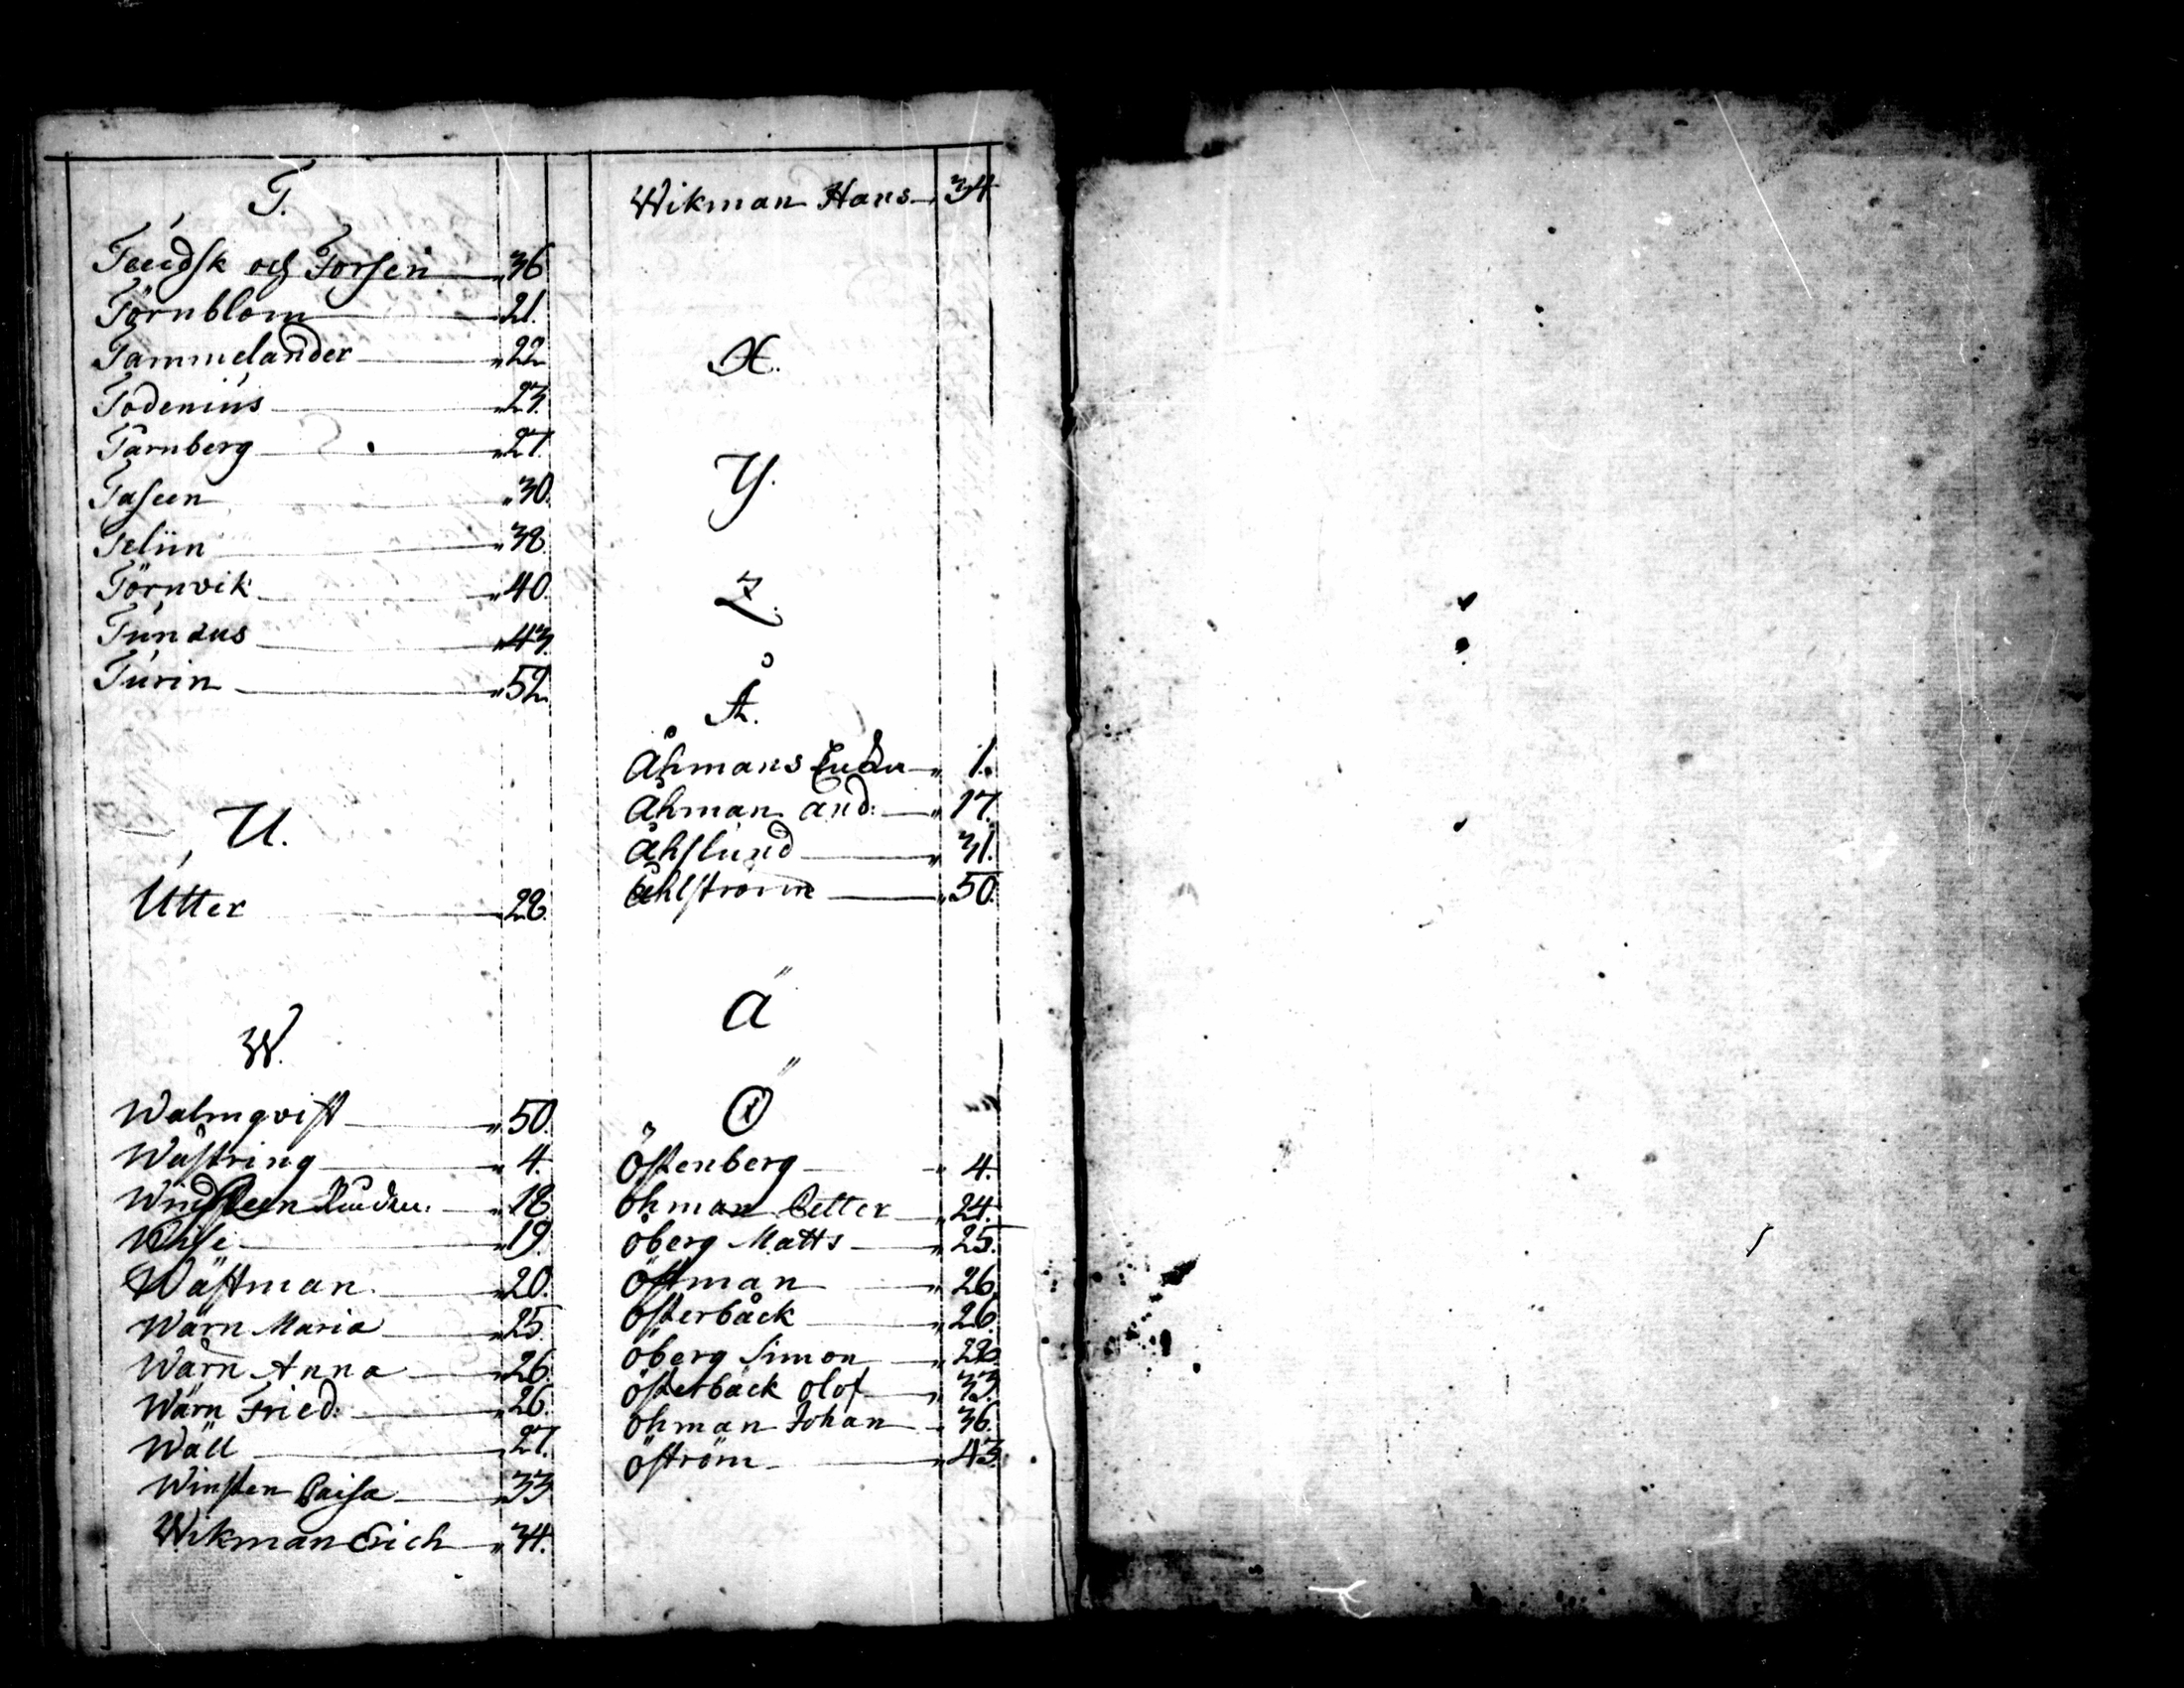 T.
och Torsen 36
Törnblom 21.
Tammelander 22
Todenius 27.
Tarnberg 27.
Taseen 30.
Teliin 38.
Törnvik 40.
Tundus 43.
Turin 52.
U.
Utter 28.
W.
Walmqvist 50.
Wästring 4.
18
19.
Wästman 20.
Wärn Maria 25
Wärn Anna 26.
Wärn Fried: 26.
Wäll 27.
Winsten Caisa 33
Wikman Erich 34.
Wikman Hans 34
X.
Y.
Z.
Å.
Åhmans 1.
Åhman And: 17.
Åhslund 31.
Åhlström 50.
Ä
Ö
Östenberg 4.
Öhman Petter 24.
Öberg Matts 25.
Östman 26.
Österbäck 26.
Öberg Simon
Österbäck Olof 33.
Öhman Johan 36.
Öström 43.